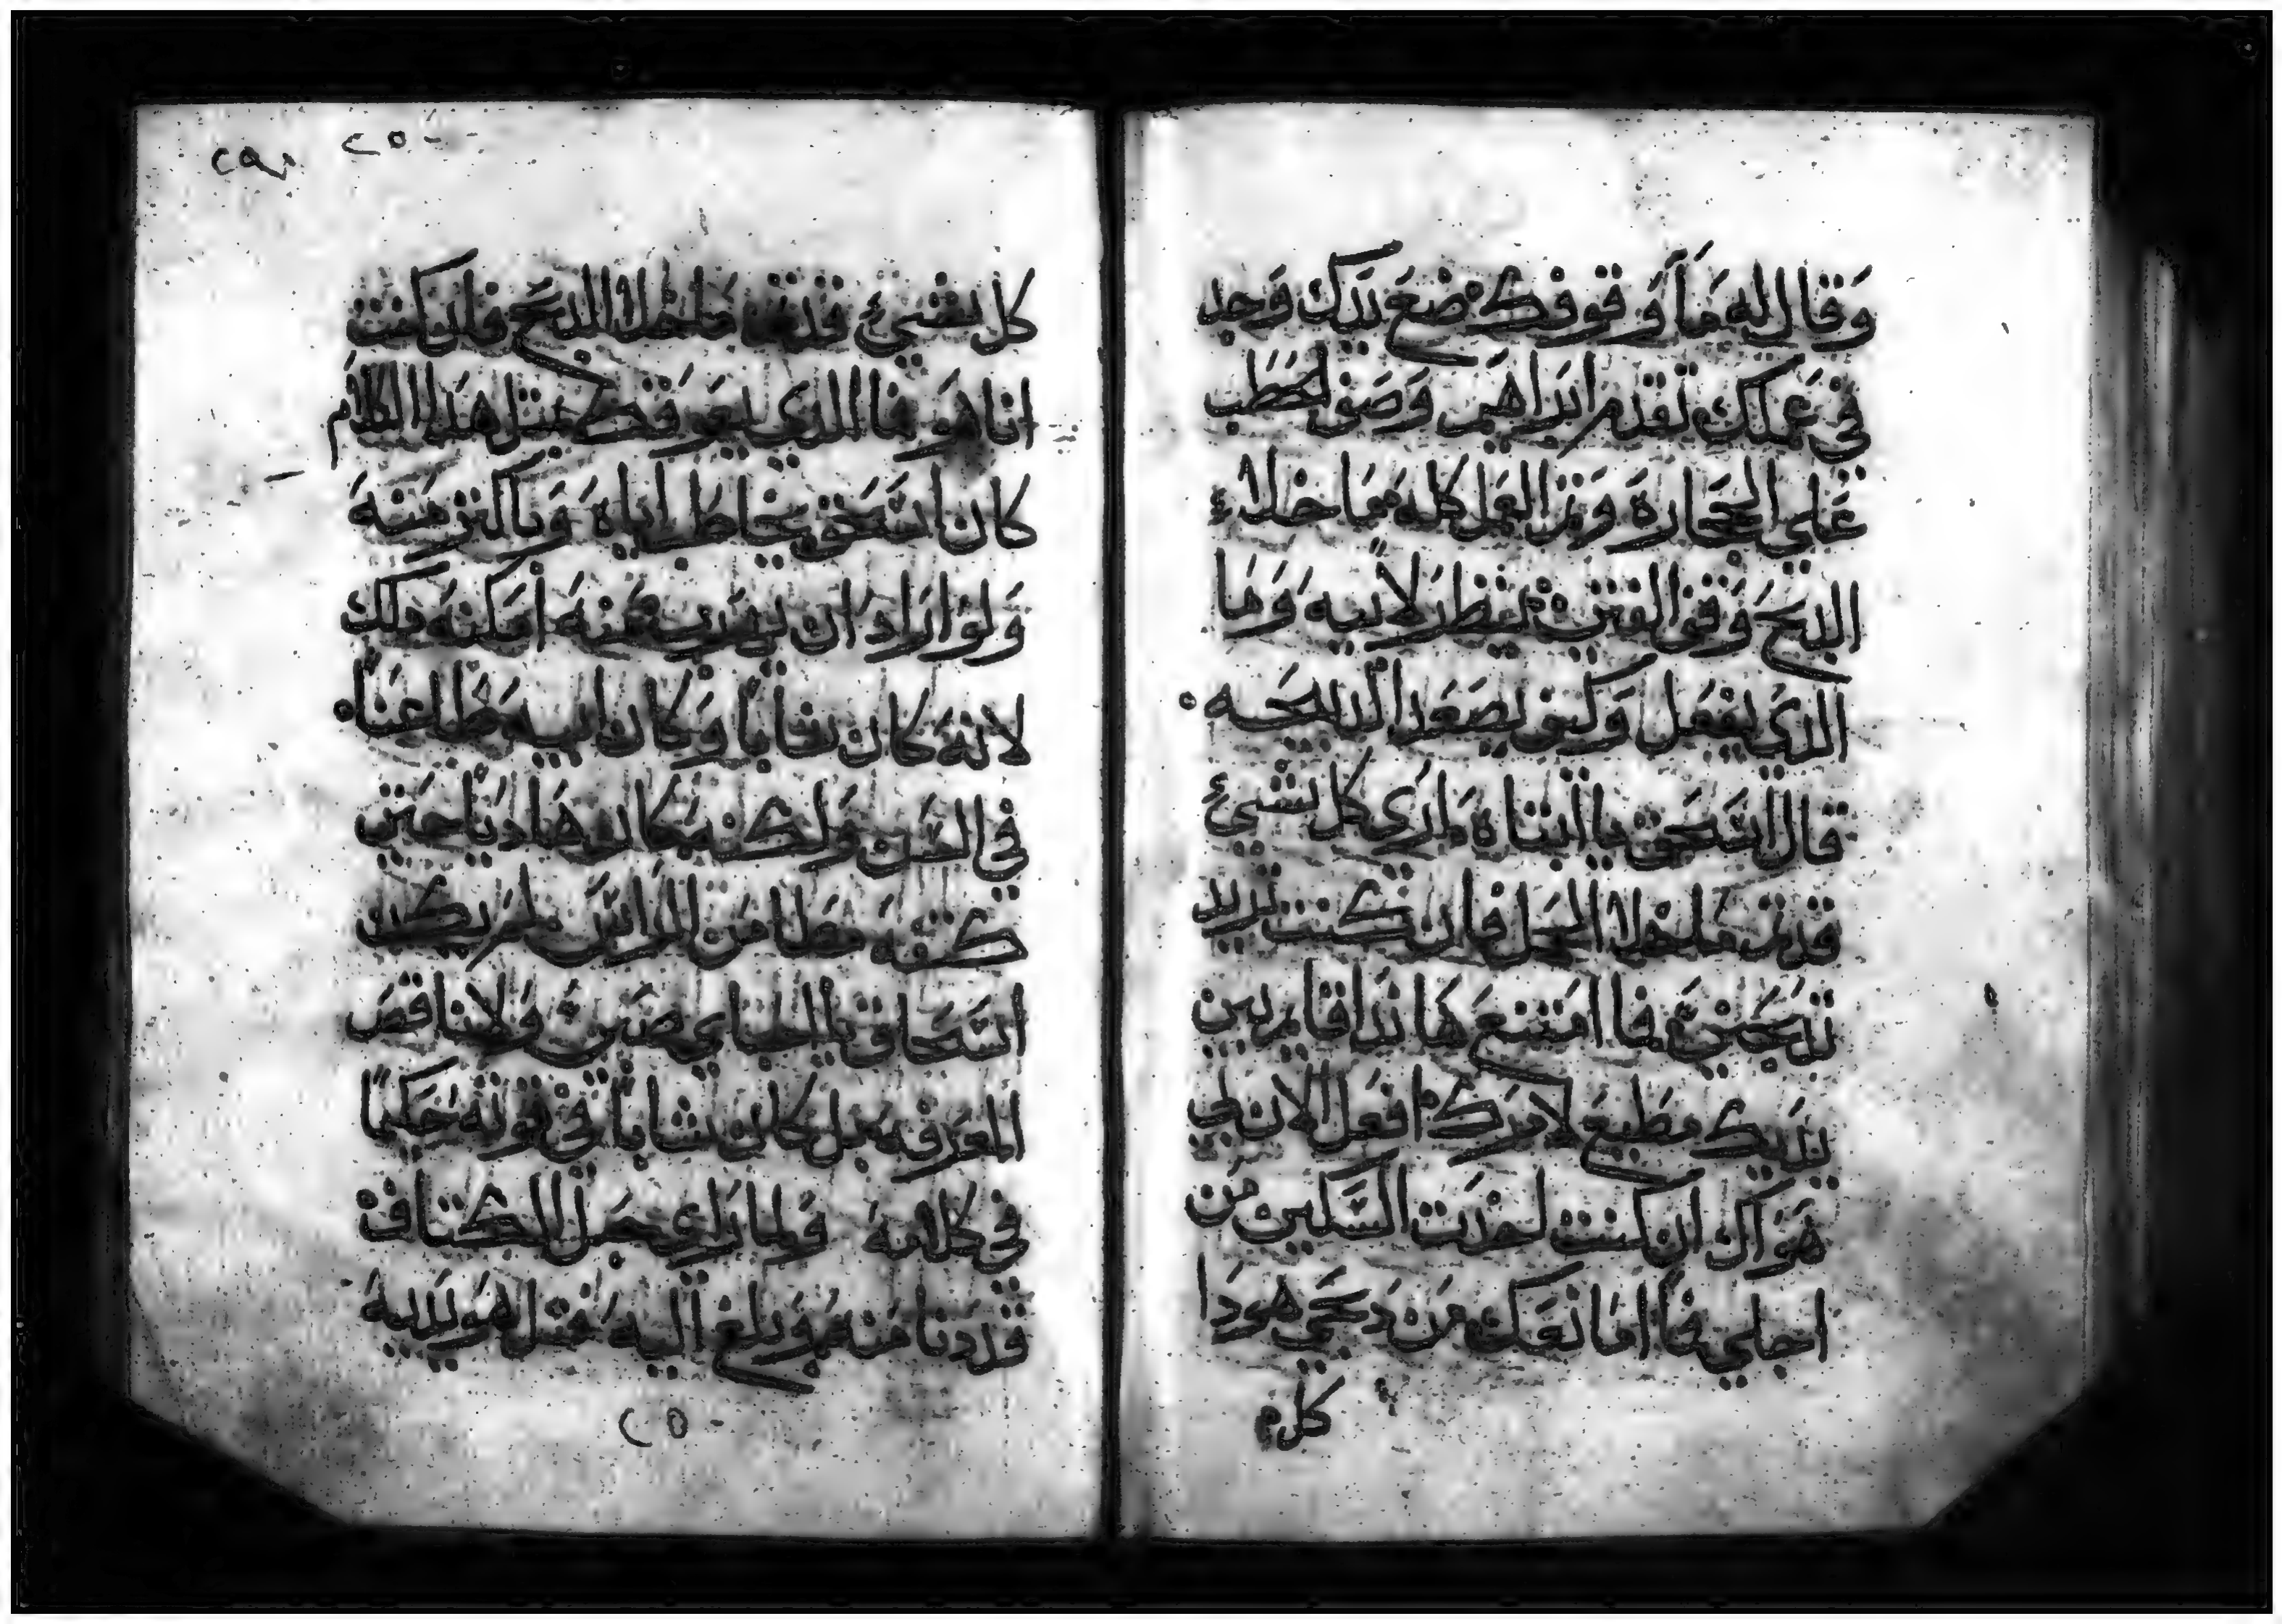 وَقال له مَا وَقوفك ضعَ يَديك وَجد
في عَملك تقدم ابراهيم وَصَفف الحطَب
عَلي الحجَارة وَتم العَمل كله مَا خلا
الدبح وَقف الفتى ينظر لابيه وَمَا
الدي يفعَل وَكيف يصعَد الدبيحَه
قال اسَحق يا ابتاه مَا اري كل شيئ
قد تم مَا خلا الحمل فان كنت تريد
تدبحَني فما امتنعَ هَا ندا قايم بين
يديك مطيعَ لامرك افعل الان لي
هَواك ان كنت اخدت السَكين من
اجلي فمَا امَانعَك مَن دَبحَي هودَا
كل م
٢٥٠
كل شيئ قد تم مَا خلا الدبح فان كنت
انا هَو فما الدي يعَوقك مثل هَدا الكلام
كان اسَحق يخاطب اباه وَباكتر مَنه
وَلو اراد ان يهَرب مَنه امَكنه دلك
لانه كان شابا وَكان ابيه طَاعنا
في السَن وَلكنه كان هَاديا حَين
كتفه مَطامن الراس ولم يكن
اسَحاق يا احباي صَبي وَلا ناقص
المعَرفه بل كان شابا في قوته حَكيما
في كلامه وَلما راي حمَل الكتاف
قد دنا مَنه وَبلغ اليه مَتل هَو يديه
٢٥٠